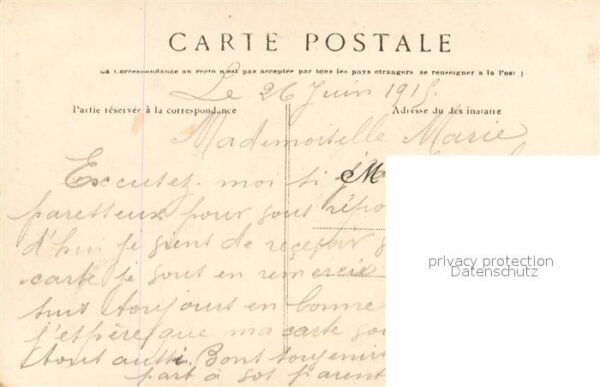 CARTE POSTALE
La Correspondance au recto n'est pas acceptée par tous les pays étrangers se renseigner à la Post )
Le 26 Juin 1915.
Partie réservée à la correspondance
Adresse du destinataire
Mademoiselle Marie
Excusez-moi si
M
paresseux pour vous répo
d'hui je vient de recevoir
carte je vous en remercie
suis toujours en bonne
j'espère que ma carte vou
tout aussi. Bons souvenirs
part à vos parent
privacy protection
Datenschutz